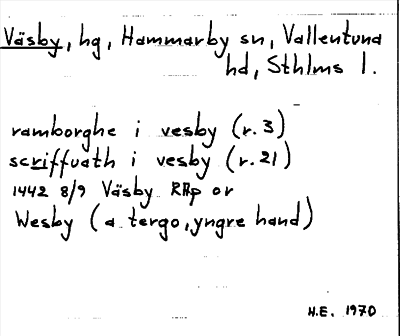 Väsby, hg, Hammarby sn, Vallentuna
hd, Sthlms l.
ramborghe i vesby (r. 3)
scriffuath i vesby (r. 21)
1442 8/9 Väsby RAp or
Wesby (a tergo, yngre hand)
H.E. 1970